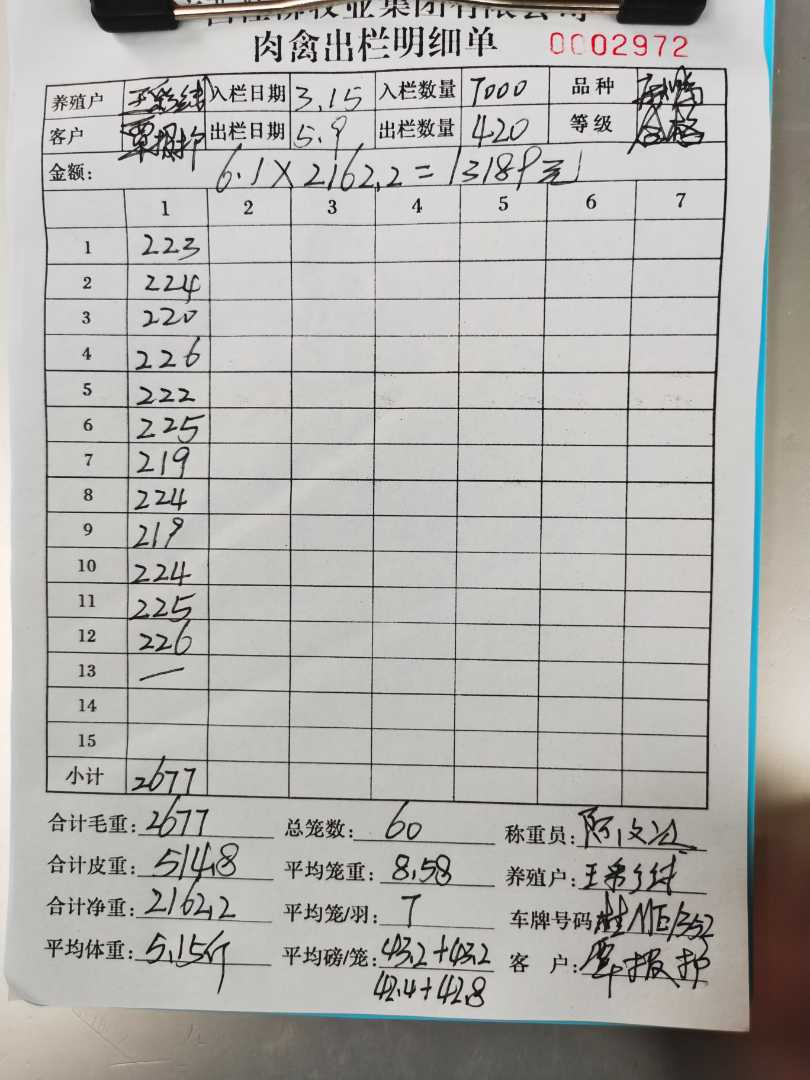 牧业集团有限公司
肉禽出栏明细单 0002972
养殖户 入栏日期 3.15 入栏数量 7000 品种
客户 覃报护 出栏日期 5.9 出栏数量 420 等级 合格
金额: 6.1×2162.2=13189元
1 2 3 4 5 6 7
1 223
2 224
3 220
4 226
5 222
6 225
7 219
8 224
9 219
10 224
11 225
12 226
13 一
14
15
小计 2677
合计毛重: 2677 总笼数: 60 称重员:
合计皮重: 514.8 平均笼重: 8.58 养殖户:
合计净重: 2162.2 平均笼/羽: 7 车牌号码: 桂ME1352
平均体重: 5.15斤 平均磅/笼: 43.2+43.2 客 户: 覃报护
42.4+42.8